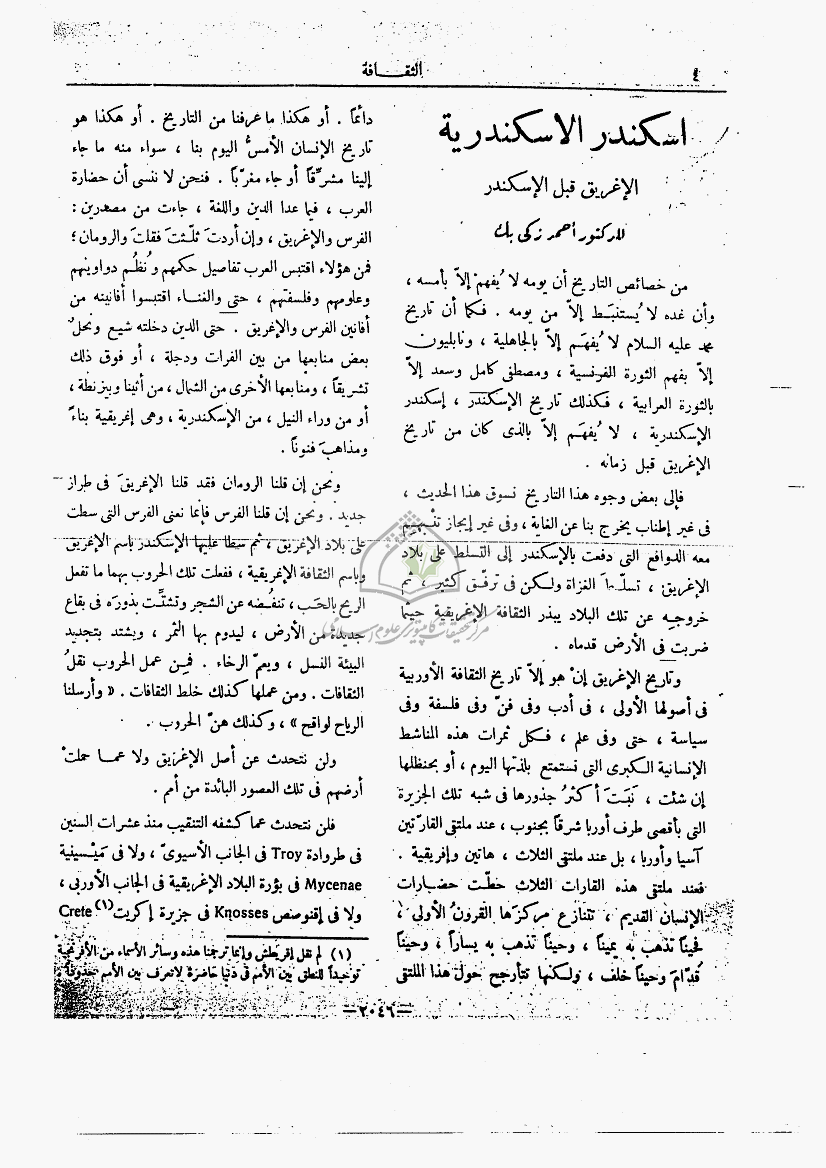 ٤
الثقافة
اسكندر الاسكندرية
الإغريق قبل الإسكندر
للدكتور أحمد زكى بك
من خصائص التاريخ أن يومه لا يُفهمْ إلاّ بأمسه ،
وأن غده لا يُستنبَط إلاّ من يومه . فكما أن تاريخ
محمد عليه السلام لا يُفهَم إلاّ بالجاهلية ، ونابليون
إلاّ بفهم الثورة الفرنسية ، ومصطفى كامل وسعد إلاّ
بالثورة العرابية ، فكذلك تاريخ الإسكندر ، إسكندر
الإسكندرية ، لا يُفهَم إلاّ بالذى كان من تاريخ
الإغريق قبل زمانه .
فإلى بعض وجوه هذا التاريخ نسوق هذا الحديث ،
فى غير إطناب يخرج بنا عن الغاية ، وفى غير إيجاز تنبهم
معه الدوافع التى دفعت بالإسكندر إلى التسلط على بلاد
الإغريق : تسلّط الغزاة ولكن فى ترفّق كثير ، ثم
خروجه عن تلك البلاد يبذر الثقافة الإغريقية حيثما
ضربت فى الأرض قدماه .
وتاريخ الإغريق إنْ هو إلاّ تاريخ الثقافة الأوربية
فى أصولها الأولى ، فى أدب وفى فنّ وفى فلسفة وفى
سياسة ، حتى وفى علم ، فكل ثمرات هذه المناشط
الإنسانية الكبرى التى نستمتع بلذتها اليوم ، أو بحنظلها
إن شئت ، نَبَتَ أكثرُ جذورها فى شبه تلك الجزيرة
التى بأقصى طرف أوربا شرقاً بجنوب ، عند ملتقى القارّتين
آسيا وأوربا ، بل عند ملتقى الثلاث ، هاتين وإفريقية .
فعند ملتقى هذه القارات الثلاث حطّت حضارات
الإنسان القديم ، تتنازع مركزَها القرونُ الأولى ،
فحيناً تذهب به يميناً ، وحيناً تذهب به يساراً ، وحيناً
قُدّامَ وحيناً خلف ، ولكنها تتأرجح حول هذا الملتقى
دائماً . أو هكذا ما عرفنا من التاريخ . أو هكذا هو
تاريخ الإنسان الأمسُّ اليوم بنا ، سواء منه ما جاء
إلينا مشرِّقاً أو جاء مغرّباً . فنحن لا ننسى أن حضارة
العرب ، فيما عدا الدين واللغة ، جاءت من مصدرين :
الفرس والإغريق ، وإن أردتَ ثلّثتَ فقلتَ والرومان ؛
فمن هؤلاء اقتبس العرب تفاصيل حكمهم ونُظُم دواوينهم
وعلومهم وفلسفتهم ، حتى والغناء اقتبسوا أفانينه من
أفانين الفرس والإغريق . حتى الدين دخلته شيع ونحلٌ
بعض منابعها من بين الفرات ودجلة ، أو فوق ذلك
تشريقاً ، ومنابعها الأخرى من الشمال ، من أثينا وبيزنطة ،
أو من وراء النيل ، من الإسكندرية ، وهى إغريقية بناءً
ومذاهبَ فنوناً .
ونحن إن قلنا الرومان فقد قلنا الإغريقَ فى طراز
جديد . ونحن إن قلنا الفرس فإنما نعنى الفرس التى سطت
على بلاد الإغريق ، ثم سطا عليها الإسكندر باسم الإغريق
وباسم الثقافة الإغريقية ، ففعلت تلك الحروب بهما ما تفعل
الريح بالحَب ، تنفُضه عن الشجر وتشتِّت بذورَه فى بقاع
جديدة من الأرض ، ليدوم بها الثمر ، ويشتد بتجديد
البيئة النسل ، ويعمّ الرخاء . فمِن عمل الحروب نقلُ
الثقافات . ومن عملها كذلك خلط الثقافات . « وأرسلنا
الرياح لواقح » ، وكذلك هنّ الحروب .
ولن نتحدث عن أصل الإغريق ولا عما حملتْ
أرضهم فى تلك العصور البائدة من أمم .
فلن نتحدث عما كشفه التنقيب منذ عشرات السنين
فى طروادة Troy فى الجانب الأسيوىّ ، ولا فى مَيْسينية
Mycenae فى بؤرة البلاد الإغريقية فى الجانب الأوربى ،
ولا فى إقنوصص Knosses فى جزيرة إكريت(١) Crete
(١) لم نقل إقريطش وإنما ترجمنا هذه وسائر الأسماء من الأفرنجية
توحيداً للنطق بين الأمم فى دنيا حاضرة لا تعرف بين الأمم حدوداً
—٢٠٤٦—
مركز تحقيقات كامپيوترى علوم اسلامى